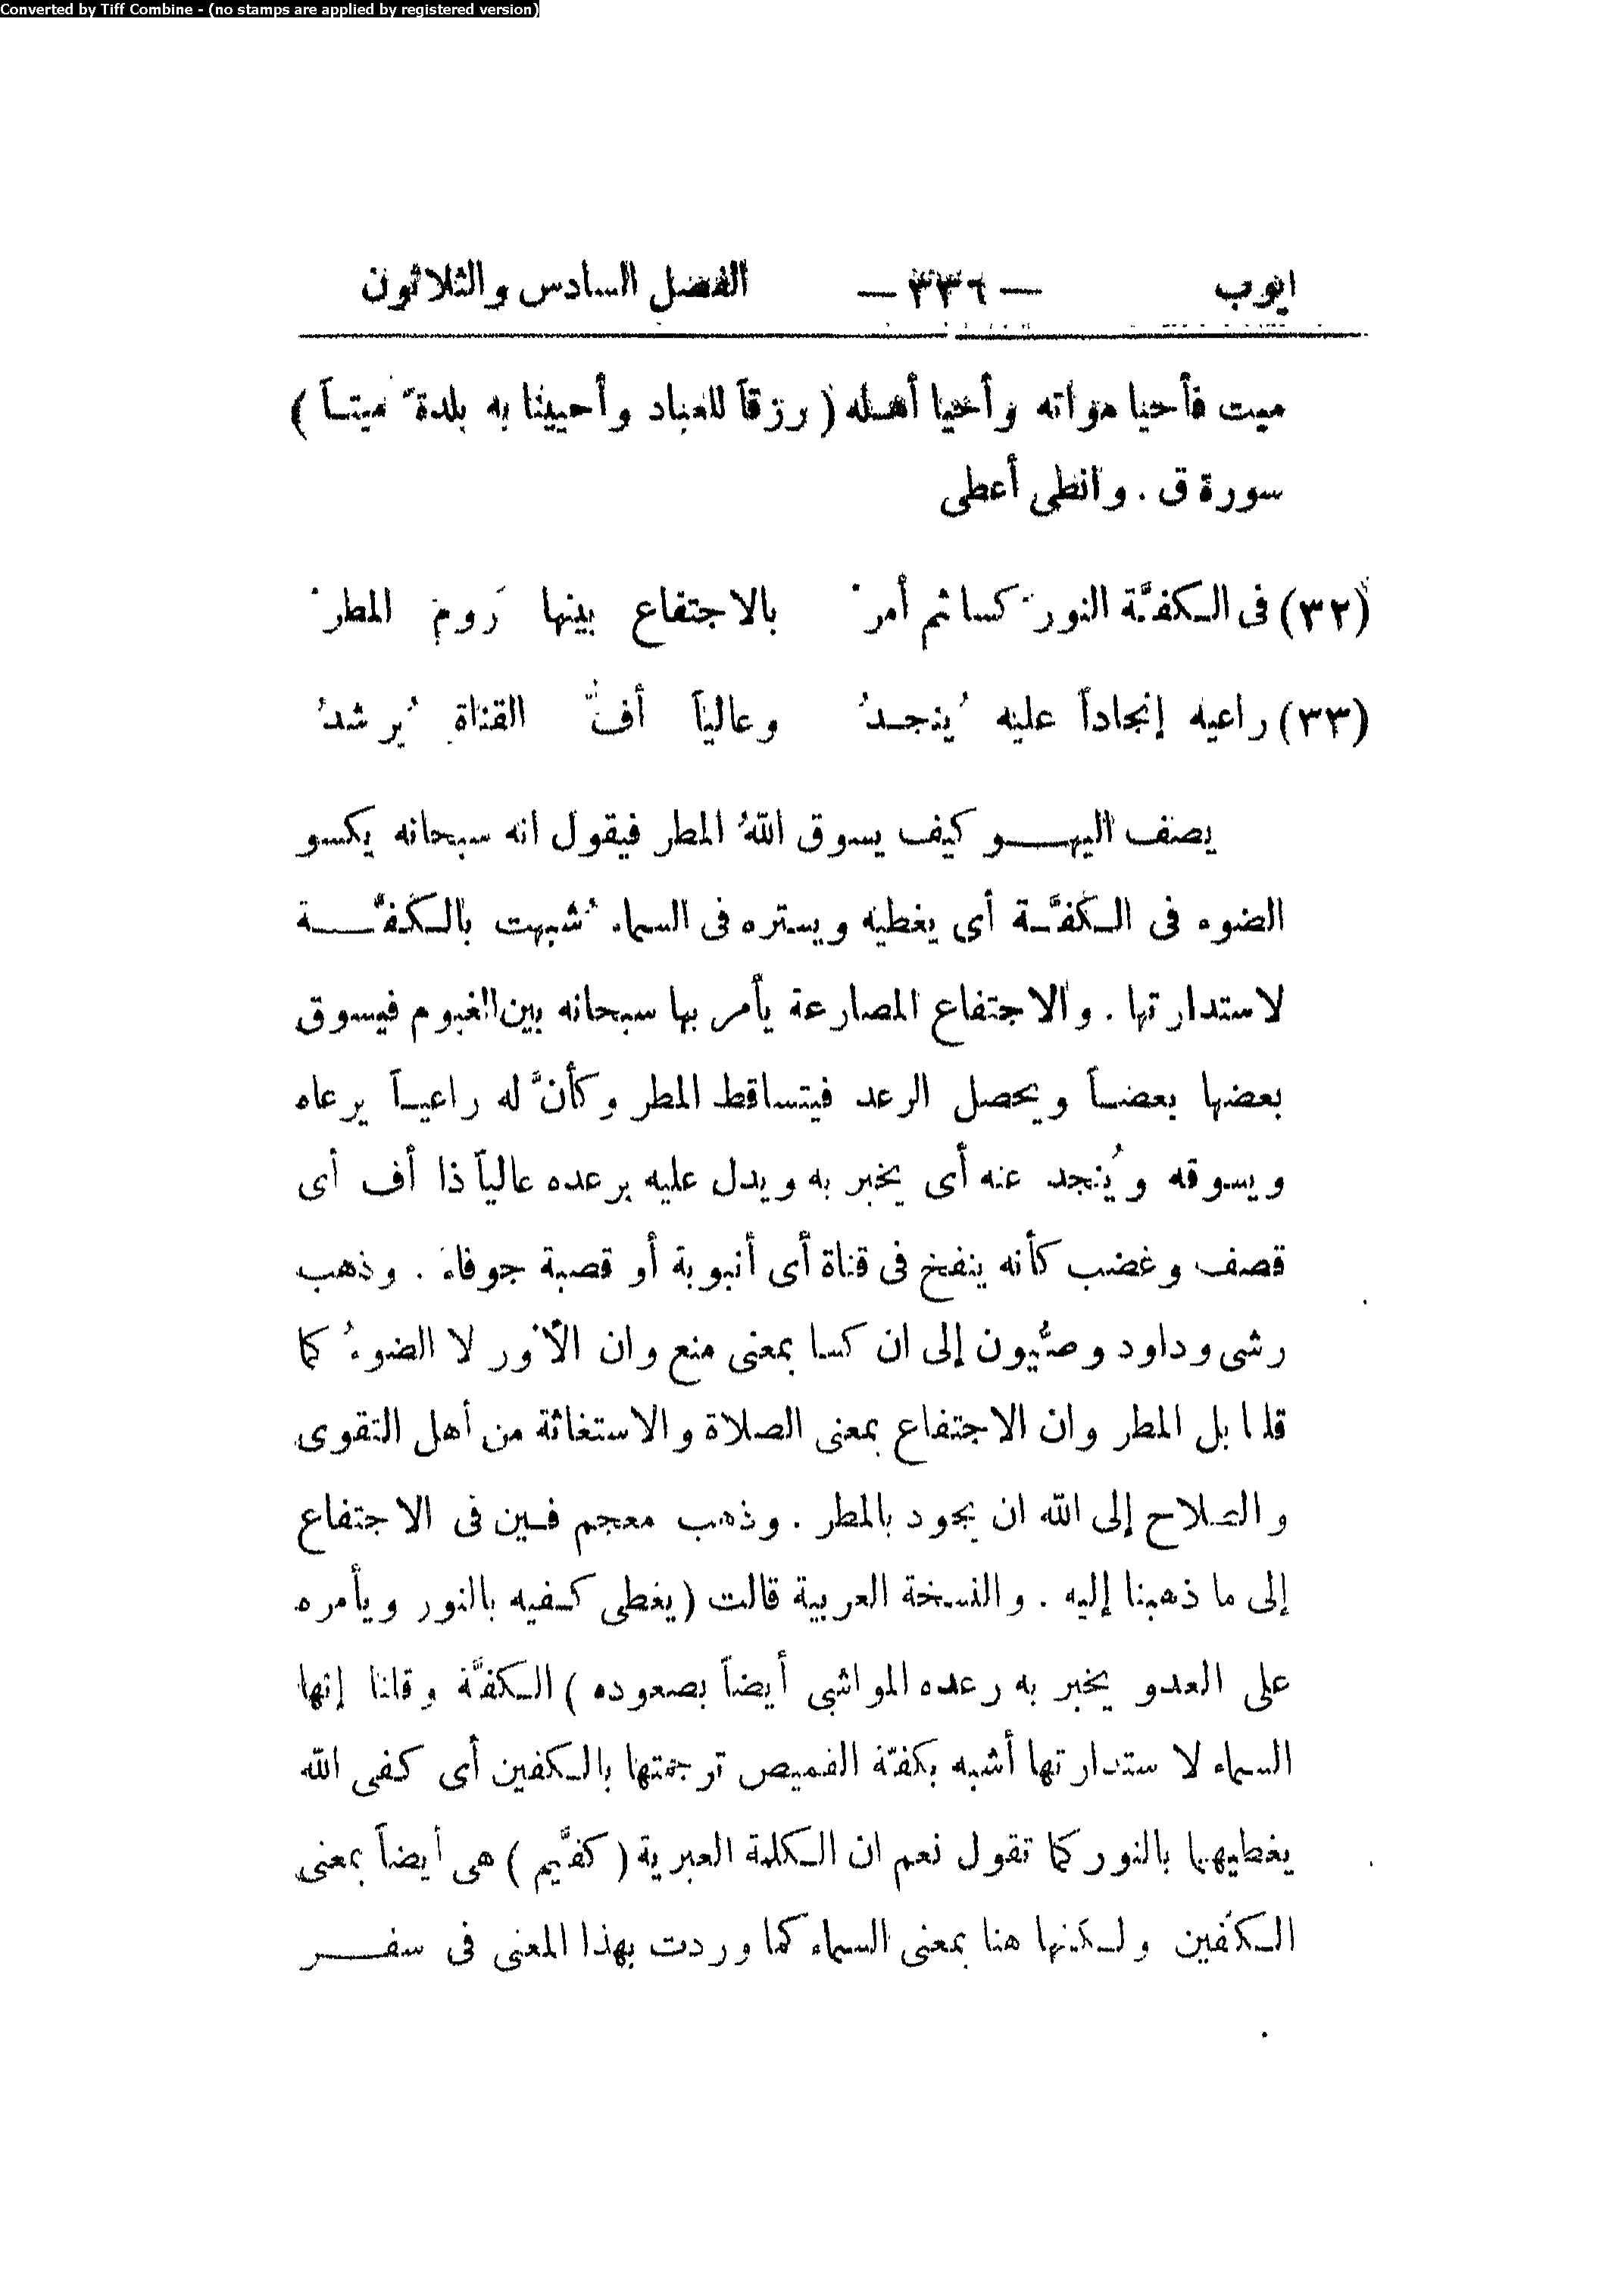 Converted by Tiff Combine - (no stamps are applied by registered version)
ايوب — ٣٣٦ — الفصل السادس والثلاثون
ميت فأحيا مواته وأحيا أهله ( رزقاً للعباد وأحيينا به بلدةً ميتاً )
سورة ق . وانطى أعطى
(٣٢) فى الكفَّة النورَ كسا ثم أمرْ بالاجتفاع بينها رَومَ المطرْ
(٣٣) راعيه إنجاداً عليه يُنجدُ وعالياً أفُّ القناةِ يُرشدُ
يصف اليهو كيف يسوق اللهُ المطر فيقول انه سبحانه يكسو
الضوء فى الكفَّة أى يغطيه ويستره فى السماء شُبهت بالكفَّة
لاستدارتها . والاجتفاع المصارعة يأمر بها سبحانه بين الغيوم فيسوق
بعضها بعضاً ويحصل الرعد فيتساقط المطر وكأنَّ له راعياً يرعاه
ويسوقه ويُنجد عنه أى يخبر به ويدل عليه برعده عالياً ذا أف أى
قصف وغضب كأنه ينفخ فى قناة أى أنبوبة أو قصبة جوفاء . وذهب
رشى وداود وصيُّون إلى ان كسا بمعنى منع وان الأور لا الضوءُ كما
قلنا بل المطر وان الاجتفاع بمعنى الصلاة والاستغاثة من أهل التقوى
والصلاح إلى الله ان يجود بالمطر . وذهب معجم فين فى الاجتفاع
إلى ما ذهبنا إليه . والنسخة العربية قالت ( يغطى كفيه بالنور ويأمره
على العدو يخبر به رعده المواشى أيضاً بصعوده ) الكفَّة وقلنا إنها
السماء لاستدارتها أشبه بكفّة القميص ترجمتها بالكفين أى كفى الله
يغطيهما بالنور كما تقول نعم ان الكلمة العبرية ( كفَّيم ) هى أيضاً بمعنى
الكفين ولكنها هنا بمعنى السماء كما وردت بهذا المعنى فى سفر